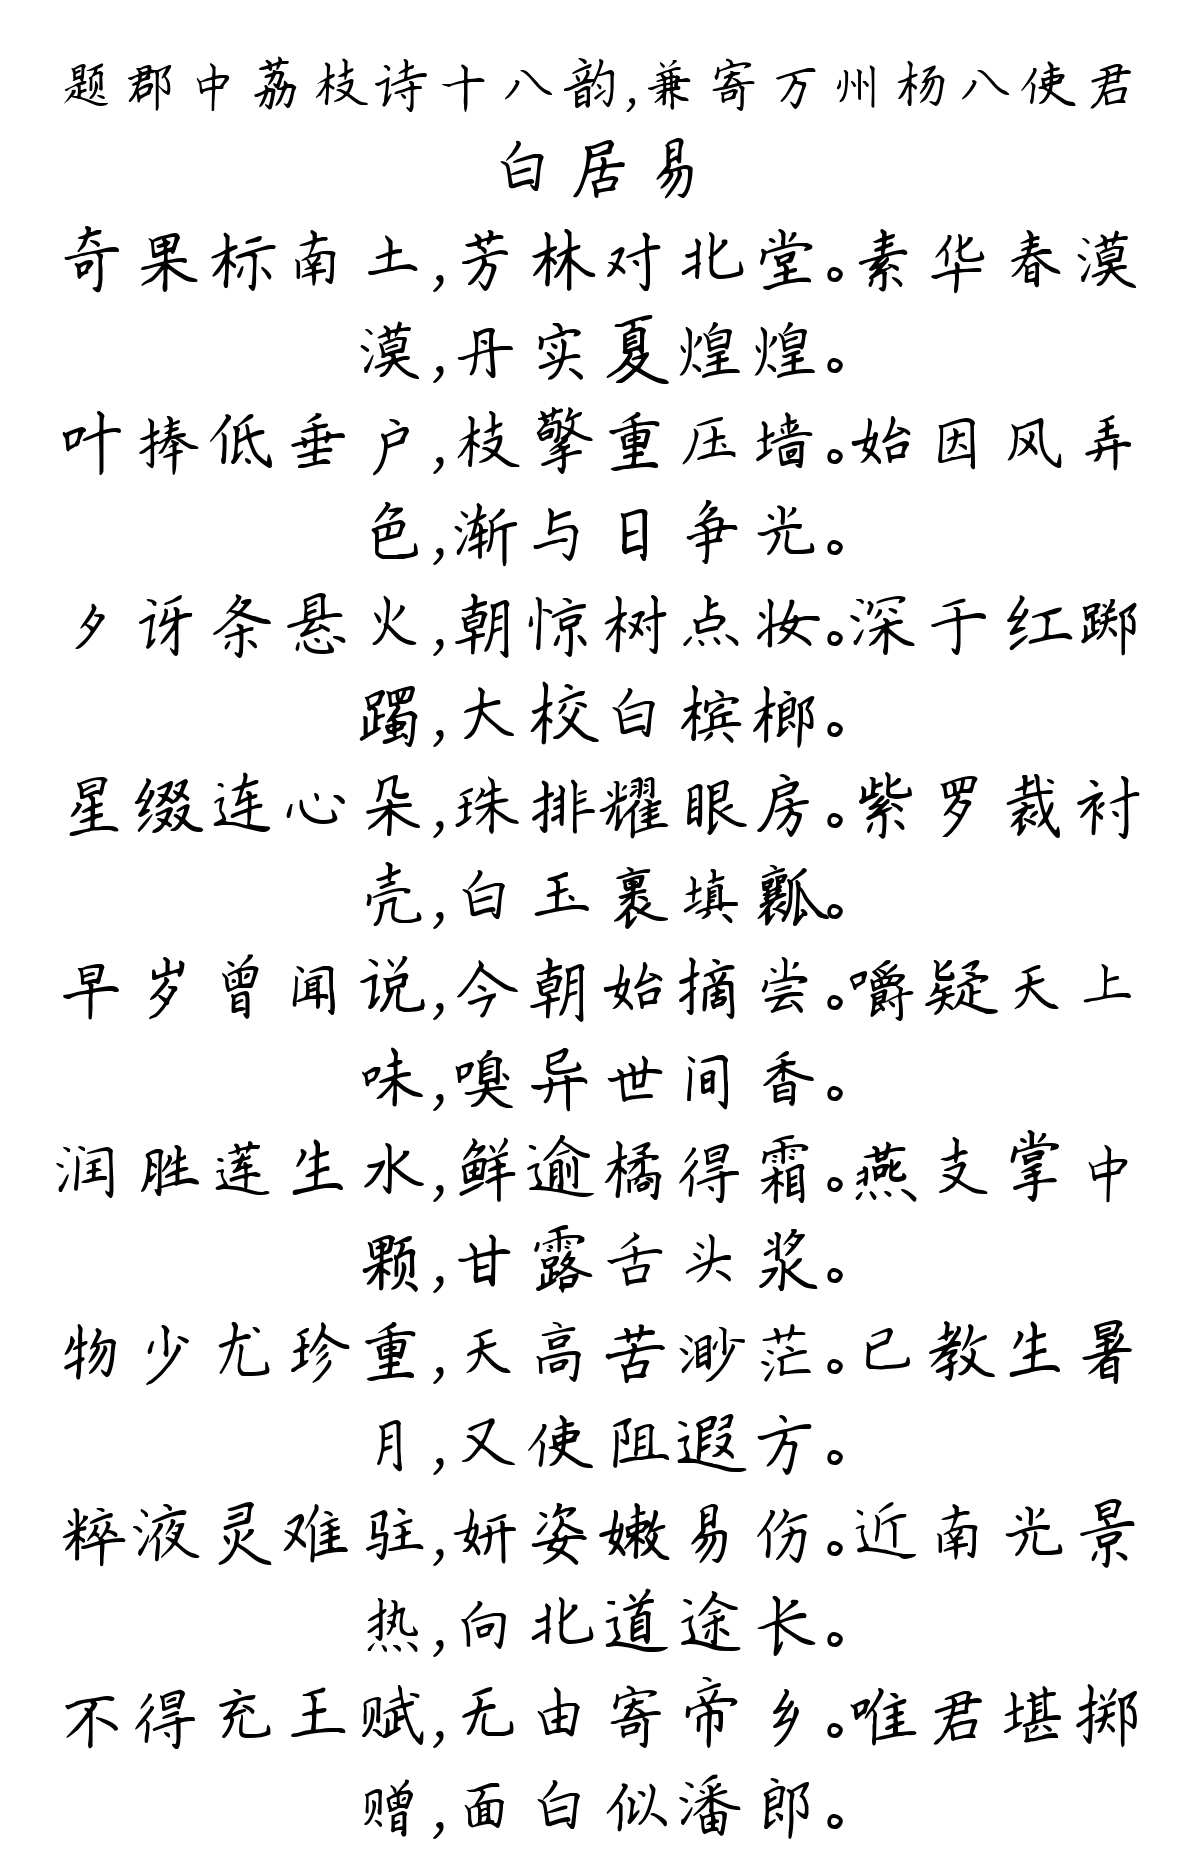 题郡中荔枝诗十八韵,兼寄万州杨八使君
白居易
奇果标南土,芳林对北堂。素华春漠
漠,丹实夏煌煌。
叶捧低垂户,枝擎重压墙。始因风弄
色,渐与日争光。
夕讶条悬火,朝惊树点妆。深于红踯
躅,大校白槟榔。
星缀连心朵,珠排耀眼房。紫罗裁衬
壳,白玉裹填瓤。
早岁曾闻说,今朝始摘尝。嚼疑天上
味,嗅异世间香。
润胜莲生水,鲜逾橘得霜。燕支掌中
颗,甘露舌头浆。
物少尤珍重,天高苦渺茫。已教生暑
月,又使阻遐方。
粹液灵难驻,妍姿嫩易伤。近南光景
热,向北道途长。
不得充王赋,无由寄帝乡。唯君堪掷
赠,面白似潘郎。